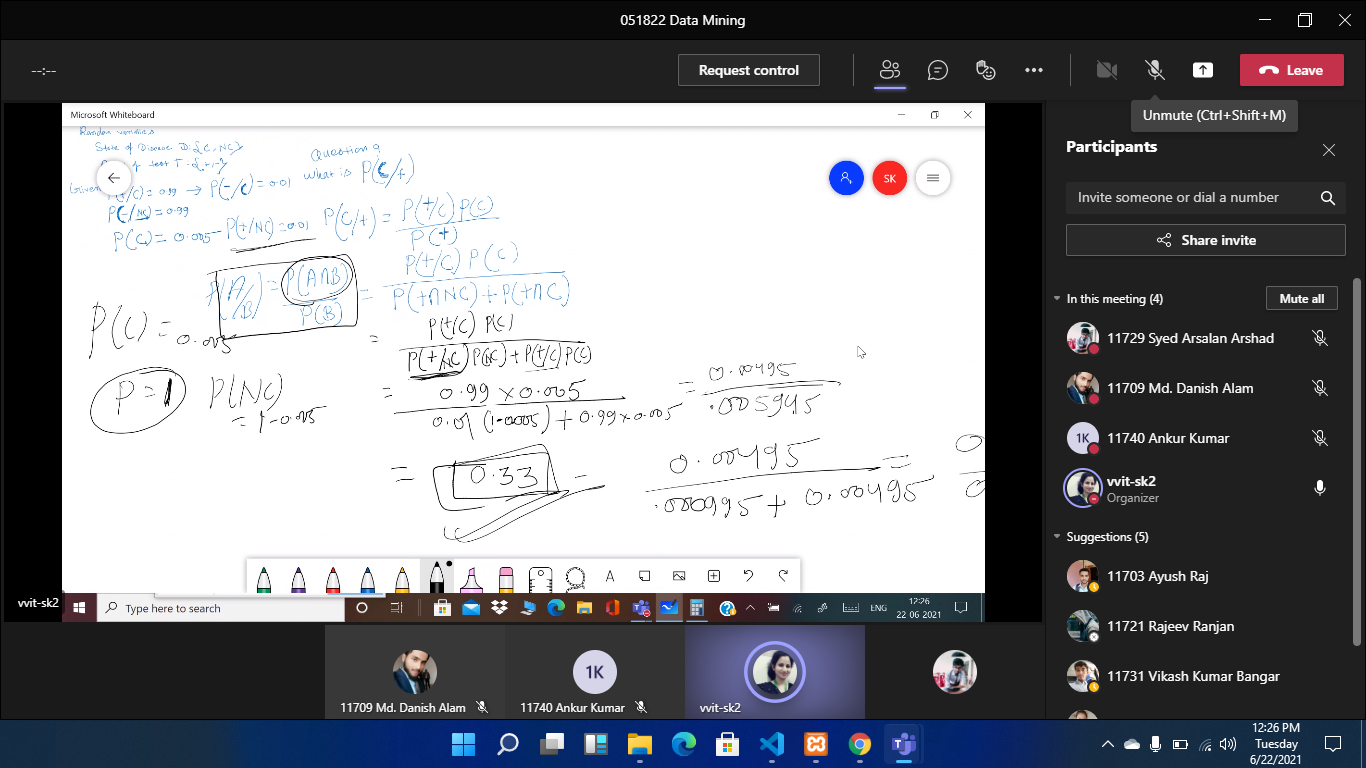 051822 Data Mining
--:--
Request control
Leave
Unmute (Ctrl+Shift+M)
Microsoft Whiteboard
Random variables
State of Disease D: {C, NC}
test T - {+, -}
Question 9
What is P(C/+)
Given P(+/C) = 0.99 → P(-/C) = 0.01
P(-/NC) = 0.99
P(C) = 0.005 - P(+/NC) = 0.01
P(C/+) = P(+/C) P(C)
P(+)
P(A/B) = P(A∩B)
P(B)
= P(+/C) P(C)
P(+∩NC) + P(+∩C)
P(C) = 0.005
= P(+/C) P(C)
P(+/NC) P(NC) + P(+/C) P(C)
P = 1
P(NC)
= 1 - 0.005
= 0.99 × 0.005
0.01 (1-0.005) + 0.99 × 0.005
= 0.00495
.005945
= 0.33 -
0.00495 =
.000995 + 0.00495
SK
A
vvit-sk2
Type here to search
ENG
12:26
22-06-2021
Participants
Invite someone or dial a number
Share invite
In this meeting (4)
Mute all
11729 Syed Arsalan Arshad
11709 Md. Danish Alam
1K
11740 Ankur Kumar
vvit-sk2
Organizer
Suggestions (5)
11703 Ayush Raj
11721 Rajeev Ranjan
11731 Vikash Kumar Bangar
11709 Md. Danish Alam
1K
11740 Ankur Kumar
vvit-sk2
12:26 PM
Tuesday
6/22/2021